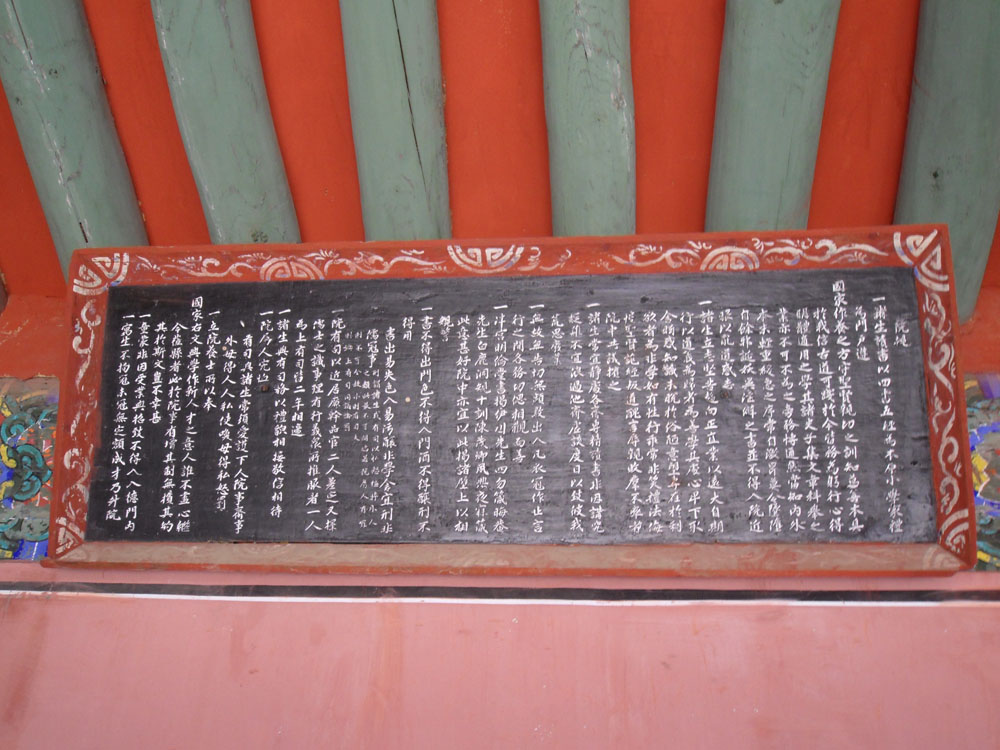 院規
一諸生讀書以四書五經爲本原小學家禮
爲門戶遵
國家作養之方守聖賢親切之訓知萬善本具
於我信古道可踐於今皆務爲躬行心得
明體適用之學其諸史子集文章科擧之
業亦不可不爲之旁務博通然當知內外
本末輕重緩急之序常自激昂莫令墜墮
自餘邪誕妖異淫辟之書並不得入院近
眼以亂道惑志
一諸生立志堅苦趨向正直業以遠大自期
行以道義爲歸者爲善學其處心卑下取
舍眩惑知識未脫於俗陋意望專在於利
欲者爲非學如有性行乖常非笑禮法侮
慢聖賢詭經反道醜言辱親敗群不率者
院中共議擯之
一諸生常宜靜處各齋專精讀書非因講究
疑難不宜浪過他齋虛談度日以致彼我
荒思廢業
一無故無告切無頻數出入凡衣冠作止言
行之間各務切偲相規爲善
一泮宮明倫堂書揭伊川先生四勿箴晦菴
先生白鹿洞規十訓陳茂卿夙興夜寐箴
此意甚好院中亦宜以此揭諸壁上以相
規警
一書不得出門色不得入門酒不得釀刑不
得用
書出易失色入易汚釀非學舍宜刑非
儒冠事
一院有司以近居廩幹品官二人差定又擇
儒士之識事理有行義衆所推服者一人
爲上有司皆二年相遞
一諸生與有司務以禮貌相接敬信相待
一院屬人完恤
有司與諸生常須愛護下人院事齋事
外毋得人人私使喚毋得私怒罰
一立院養士所以奉
國家右文興學作新人才之意人誰不盡心繼
今莅縣者必於院事有增其制無損其約
其於斯文豈不幸甚
一童蒙非因受業與招致不得入入德門內
一寓生不拘冠未冠無定額成才乃升院